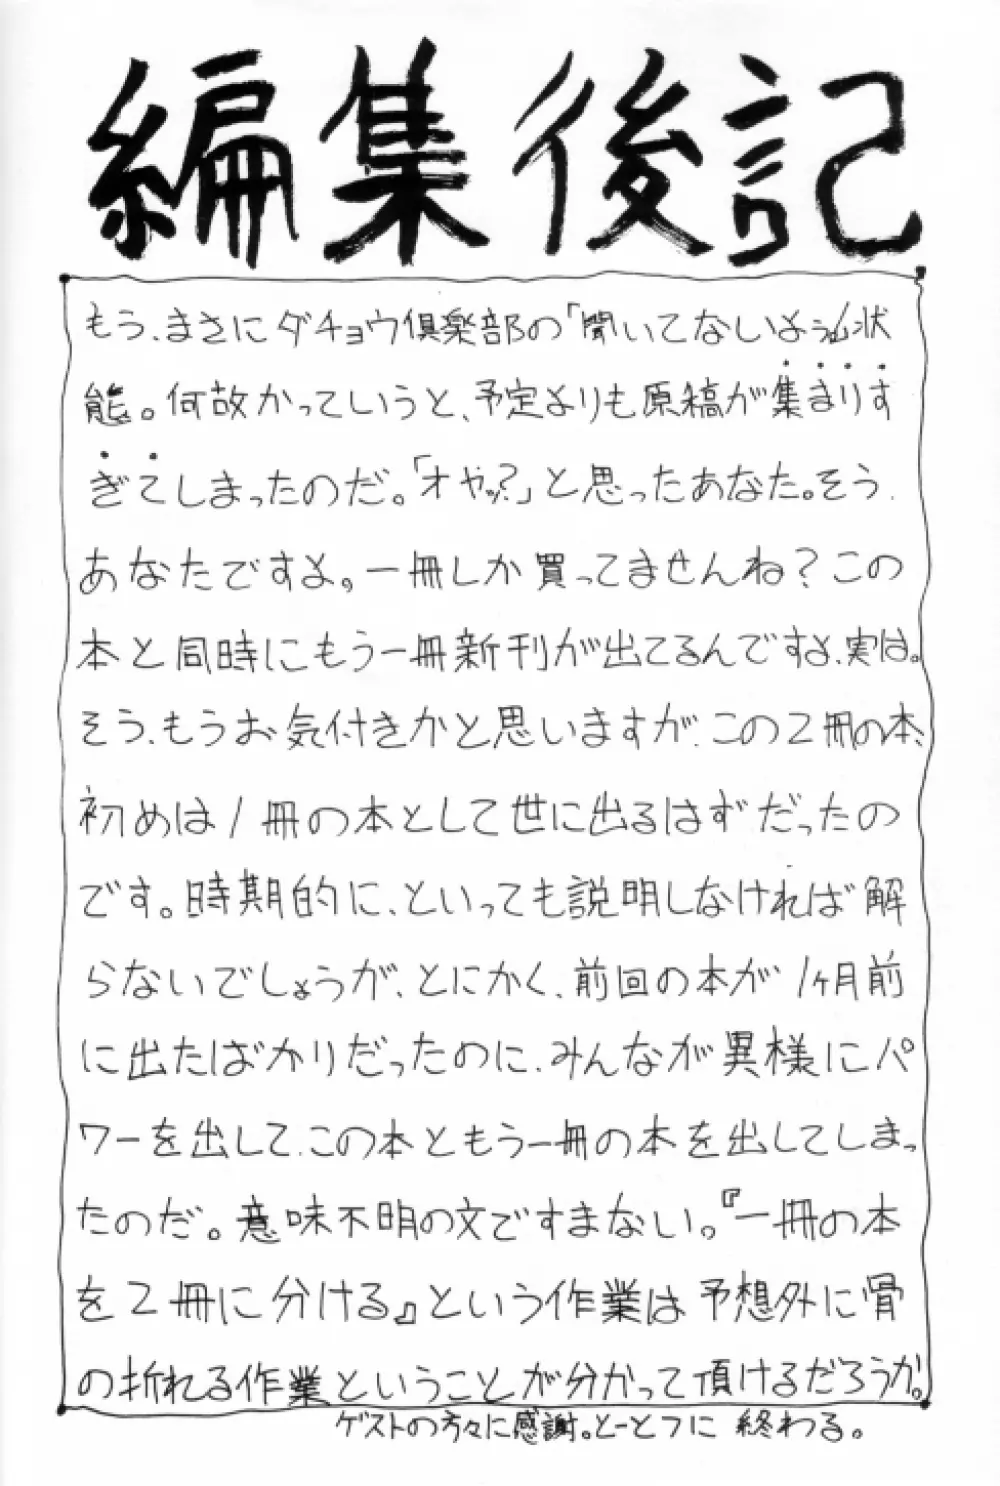 編集後記
もう、まさにダチョウ倶楽部の「聞いてないよう」状
態。何故かっていうと、予定よりも原稿が集まりす
ぎてしまったのだ。「オヤッ?」と思ったあなた。そう、
あなたですよ。一冊しか買ってませんね?この
本と同時にもう一冊新刊が出てるんですよ、実は。
そう、もうお気付きかと思いますが、この2冊の本、
初めは1冊の本として世に出るはずだったの
です。時期的に、といっても説明しなければ解
らないでしょうが、とにかく、前回の本が1ヶ月前
に出たばかりだったのに、みんなが異様にパ
ワーを出して、この本ともう一冊の本を出してしまっ
たのだ。意味不明の文ですまない。『一冊の本
を2冊に分ける』という作業は予想外に骨
の折れる作業ということが分かって頂けるだろうか。
ゲストの方々に感謝。とーとつに 終わる。